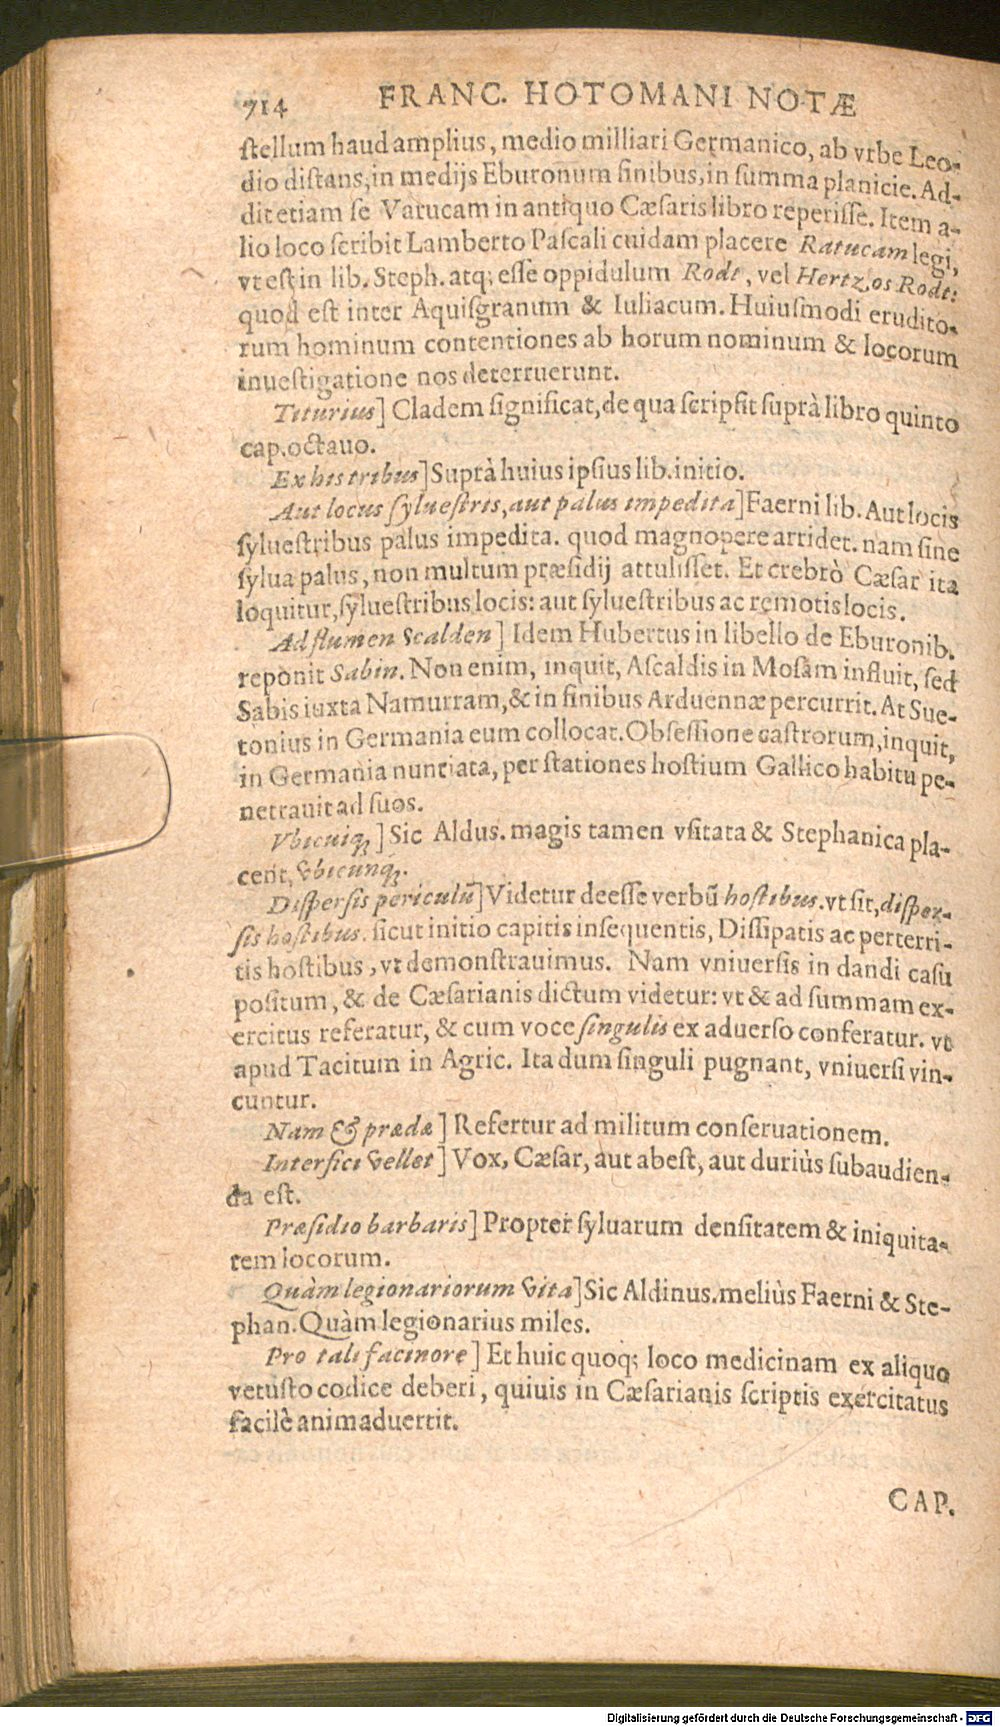 714 FRANC. HOTOMANI NOTÆ
ſtellum haud amplius, medio milliari Germanico, ab vrbe Leo-
dio diſtans, in medijs Eburonum finibus, in ſumma planicie. Ad-
dit etiam ſe Vatucam in antiquo Cæſaris libro reperiſſe. Item a-
lio loco ſcribit Lamberto Paſcali cuidam placere Ratucam legi,
vt eſt in lib. Steph. atq; eſſe oppidulum Rodt, vel Hertzos Rodt:
quod eſt inter Aquiſgranum & Iuliacum. Huiuſmodi erudito-
rum hominum contentiones ab horum nominum & locorum
inueſtigatione nos deterruerunt.
Titurius] Cladem ſignificat, de qua ſcripſit ſuprà libro quinto
cap. octauo.
Ex his tribus] Suprà huius ipſius lib. initio.
Aut locus ſylueſtris, aut palus impedita] Faerni lib. Aut locis
ſylueſtribus palus impedita. quod magnopere arridet. nam ſine
ſylua palus, non multum præſidij attuliſſet. Et crebrò Cæſar ita
loquitur, ſylueſtribus locis: aut ſylueſtribus ac remotis locis.
Ad flumen Scalden] Idem Hubertus in libello de Eburonib.
reponit Sabin. Non enim, inquit, Aſcaldis in Moſam influit, ſed
Sabis iuxta Namurram, & in finibus Arduennæ percurrit. At Sue-
tonius in Germania eum collocat. Obſeſſione caſtrorum, inquit,
in Germania nuntiata, per ſtationes hoſtium Gallico habitu pe-
netrauit ad ſuos.
Vbicuiq;] Sic Aldus. magis tamen vſitata & Stephanica pla-
cent, vbicunq;.
Diſperſis periculū] Videtur deeſſe verbū hoſtibus. vt ſit, diſper-
ſis hoſtibus. ſicut initio capitis inſequentis, Diſſipatis ac perterri-
tis hoſtibus, vt demonſtrauimus. Nam vniuerſis in dandi caſu
poſitum, & de Cæſarianis dictum videtur: vt & ad ſummam ex-
ercitus referatur, & cum voce ſingulis ex aduerſo conferatur. vt
apud Tacitum in Agric. Ita dum ſinguli pugnant, vniuerſi vin-
cuntur.
Nam & prædæ] Refertur ad militum conſeruationem.
Interfici vellet] Vox, Cæſar, aut abeſt, aut duriùs ſubaudien-
da eſt.
Præſidio barbaris] Propter ſyluarum denſitatem & iniquita-
tem locorum.
Quàm legionariorum vita] Sic Aldinus. meliùs Faerni & Ste-
phan. Quàm legionarius miles.
Pro tali facinore] Et huic quoq; loco medicinam ex aliquo
vetuſto codice deberi, quiuis in Cæſarianis ſcriptis exercitatus
facilè animaduertit.
CAP.
Digitalisierung gefördert durch die Deutsche Forschungsgemeinschaft - DFG